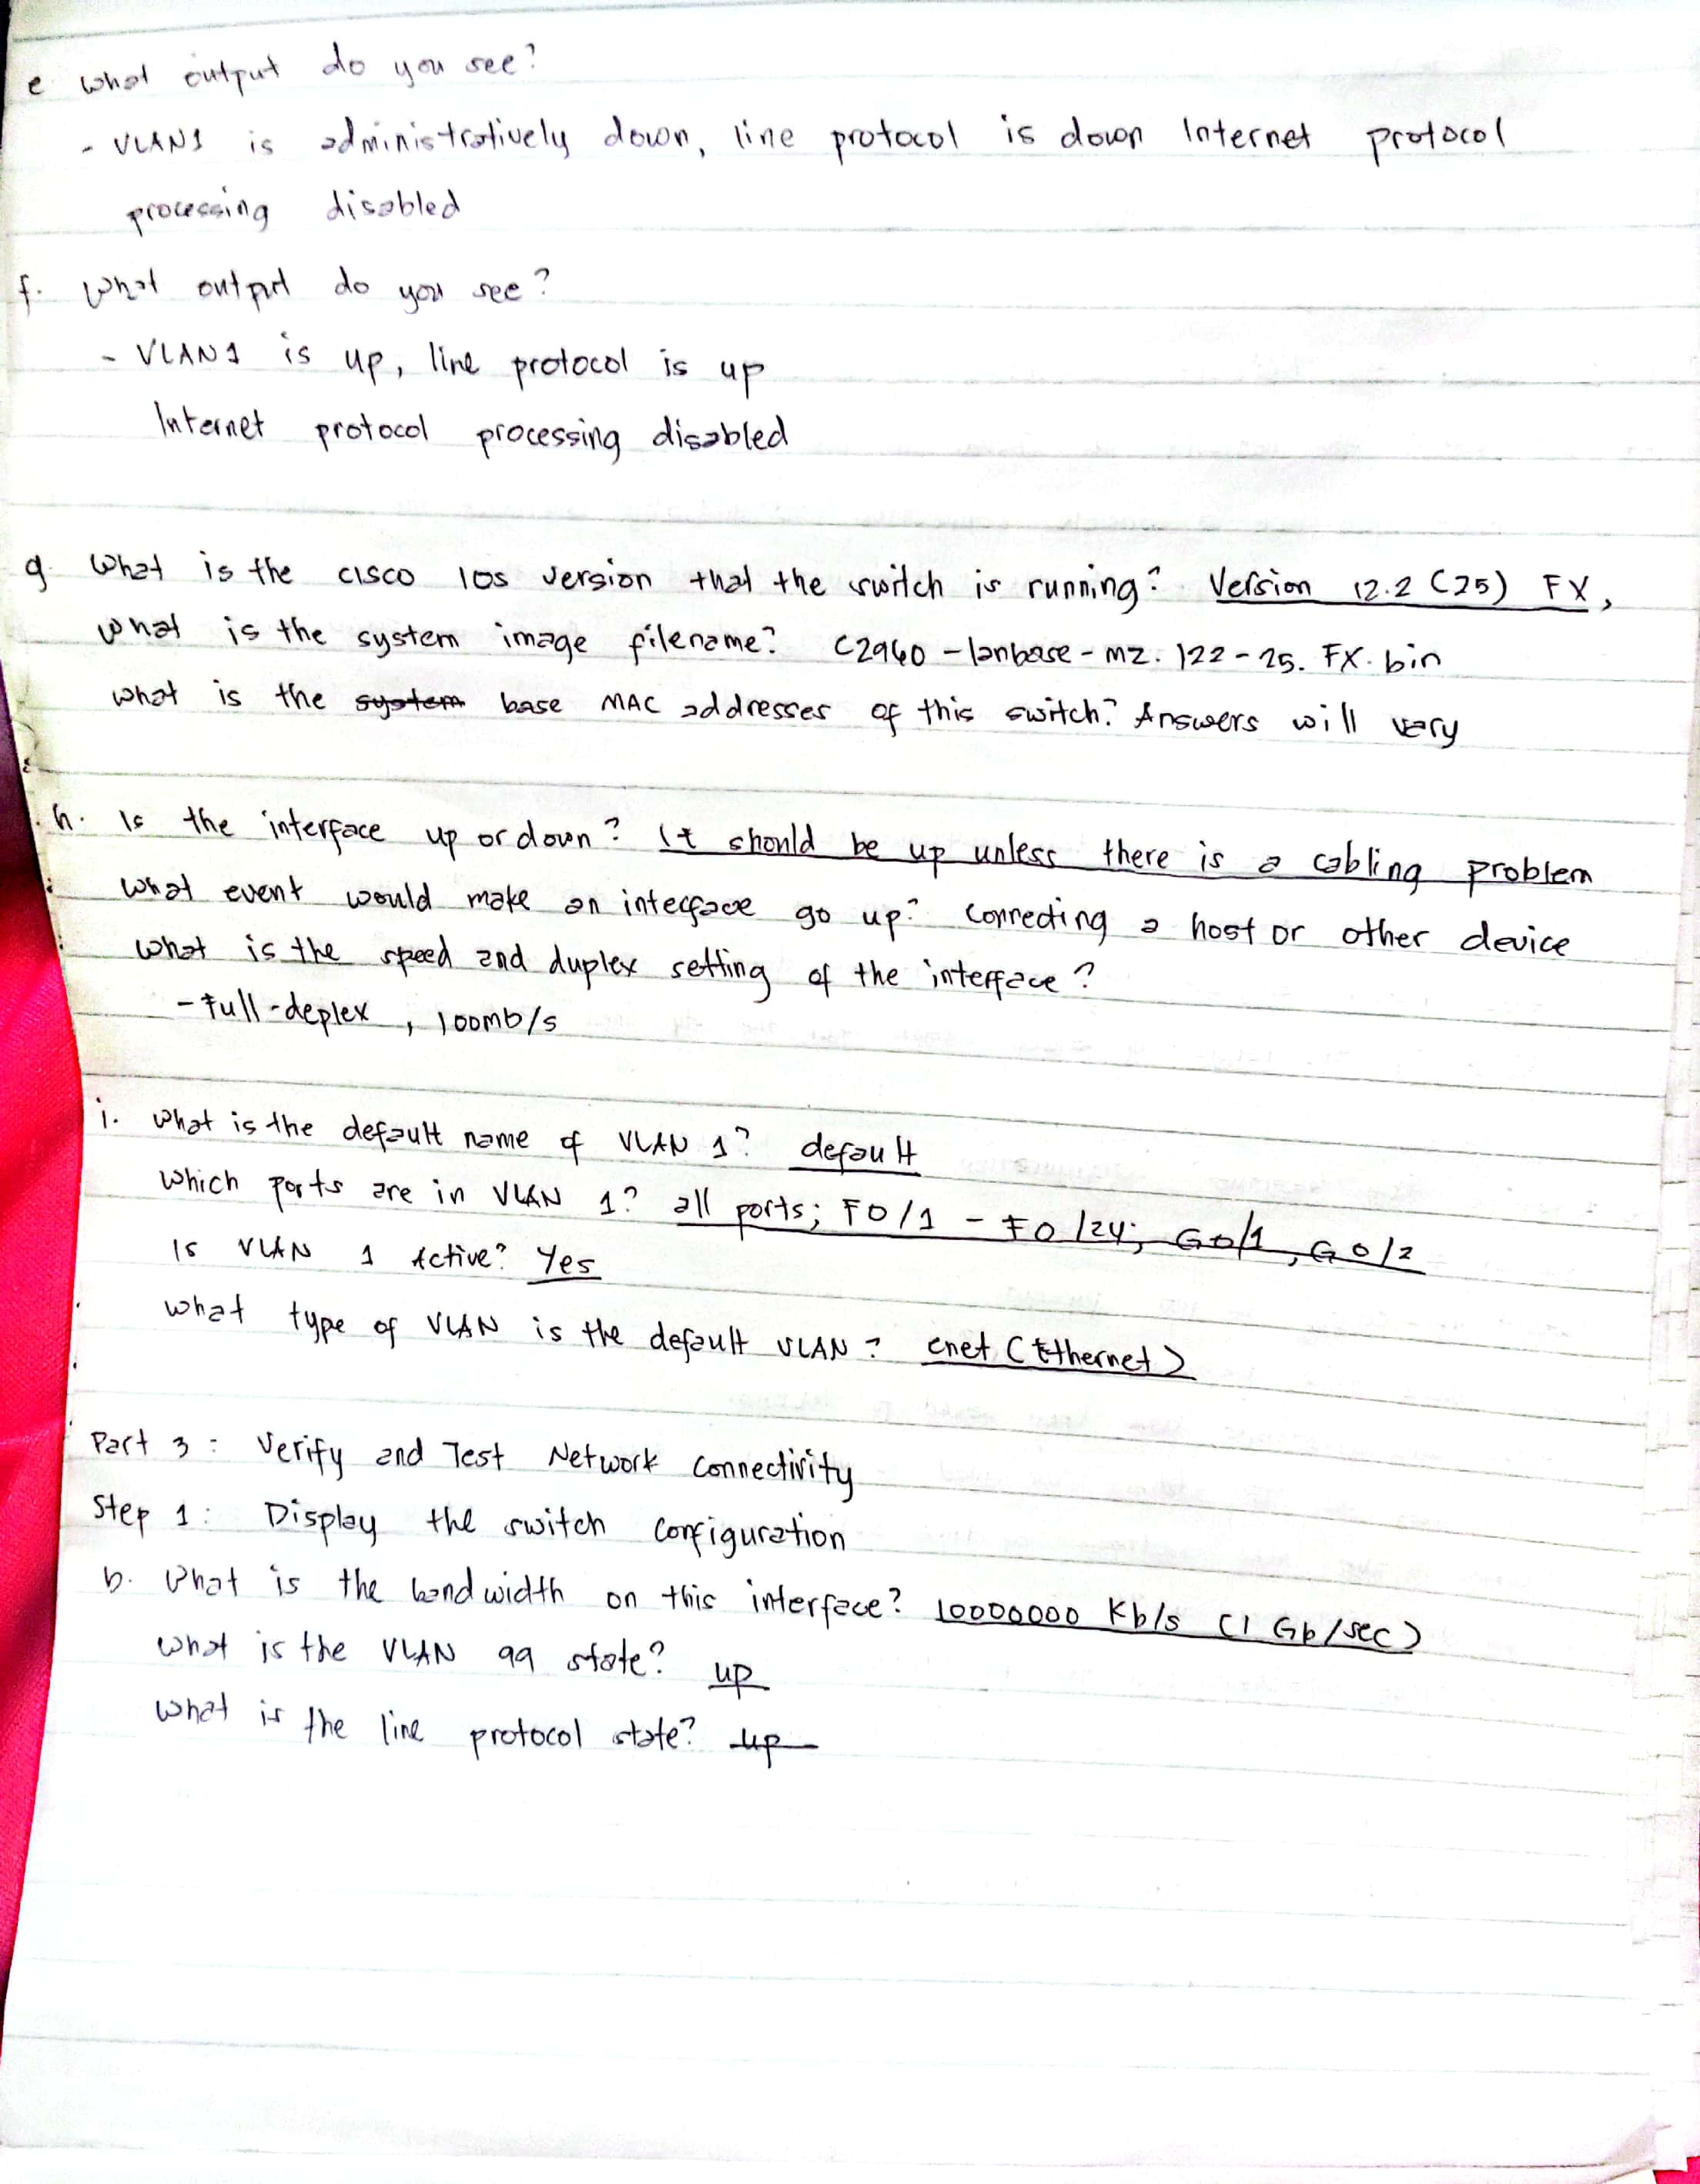 e what output do you see?
- VLAN1 is administratively down, line protocol is down Internet protocol
processing disabled
f. what output do you see?
- VLAN1 is up, line protocol is up
Internet protocol processing disabled
g. What is the cisco ios version that the switch is running? Version 12.2 (25) FX,
what is the system image filename? C2960-lanbase-mz.122-25.FX.bin
what is the system base MAC addresses of this switch? Answers will vary
h. Is the interface up or down? It should be up unless there is a cabling problem
what event would make an interface go up? connecting a host or other device
what is the speed and duplex setting of the interface?
- Full-deplex, 100mb/s
i. what is the default name of VLAN 1? default
which ports are in VLAN 1? all ports; F0/1 - F0/24; G0/1, G0/2
Is VLAN 1 Active? Yes
what type of VLAN is the default VLAN? enet (Ethernet)
Part 3: Verify and Test Network Connectivity
Step 1: Display the switch configuration
b. What is the bandwidth on this interface? 10000000 Kb/s (1 Gb/sec)
what is the VLAN 99 state? up
what is the line protocol state? up